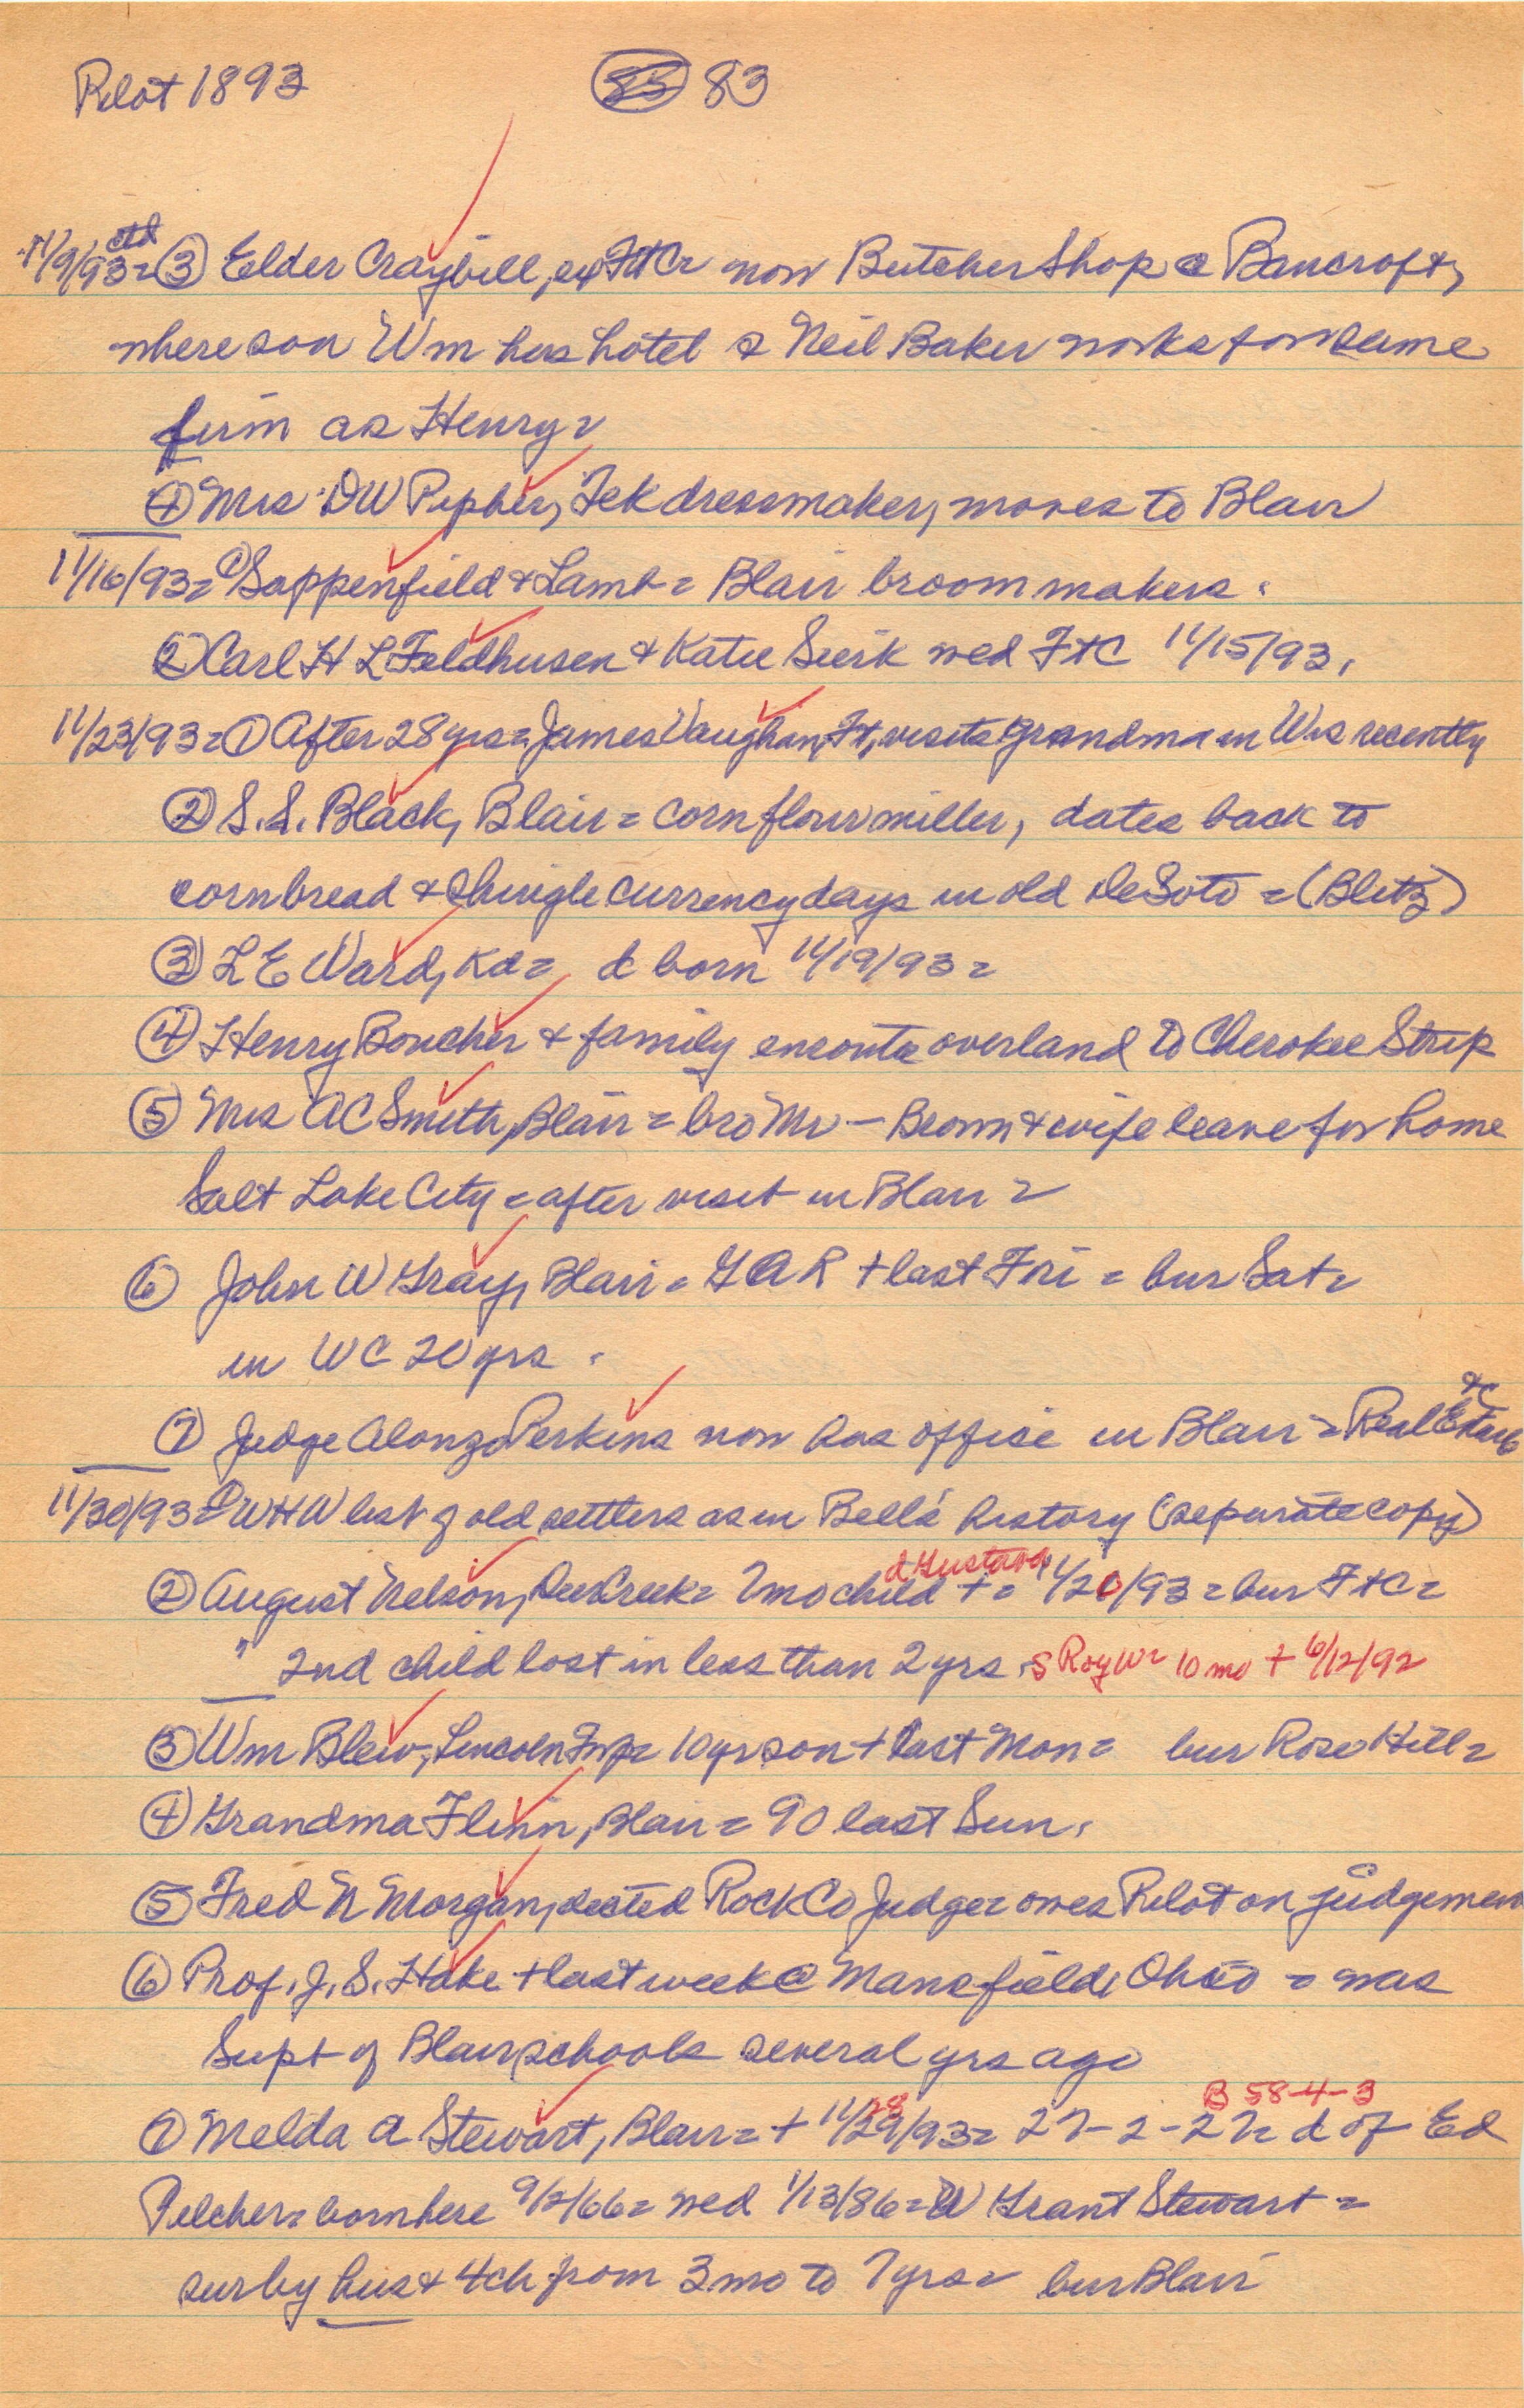 Pilot 1893 83
11/9/93 = ctd ③ Elder Craybill, ex FtC = now Butcher Shop @ Bancroft,
where son Wm has hotel & Neil Baker works for same
firm as Henry =
④ Mrs DW Pipher, Tek dressmaker, moves to Blair
11/16/93 = ① Sappenfield & Lamb = Blair broom makers.
② Carl H L Feldhusen & Katie Sierk wed FtC 11/15/93.
11/23/93 = ① After 28 yrs = James Vaughan, Ft, visits Grandma in Wis recently
② S.S. Black, Blair = corn flour miller, dates back to
cornbread & shingle currency days in old DeSoto = (Blitz)
③ L E Ward, Kd = d born 11/19/93 =
④ Henry Boucher & family enroute overland to Cherokee Strip
⑤ Mrs AC Smith, Blair = bro Mr — Brown & wife leave for home
Salt Lake City = after visit in Blair =
⑥ John W Gray, Blair = GAR + last Fri = bur Sat =
in WC 20 yrs.
⑦ Judge Alonzo Perkins now has office in Blair = Real Estate &c
11/30/93 = ① WHW list of old settlers as in Bell's history (separate copy)
② August Nelson, Dee Creek = 7 mo child d Gustava + = 11/20/93 = bur FtC =
" 2nd child lost in less than 2 yrs. S Roy W = 10 mo + 6/12/92
③ Wm Blew, Lincoln Twp = 10 yr son + last Mon = bur Rose Hill =
④ Grandma Flinn, Blair = 90 last Sun.
⑤ Fred N Morgan, elected Rock Co Judge = owes Pilot on judgement
⑥ Prof. J. S. Hake + last week @ Mansfield, Ohio = was
Supt of Blair schools several yrs ago
B 58-4-3
⑦ Melda A Stewart, Blair = + 11/28/93 = 27-2-27 = d of Ed
Pilcher = born here 9/2/66 = wed 1/13/86 = W Grant Stewart =
sur by hus & 4 ch from 3 mo to 7 yrs = bur Blair